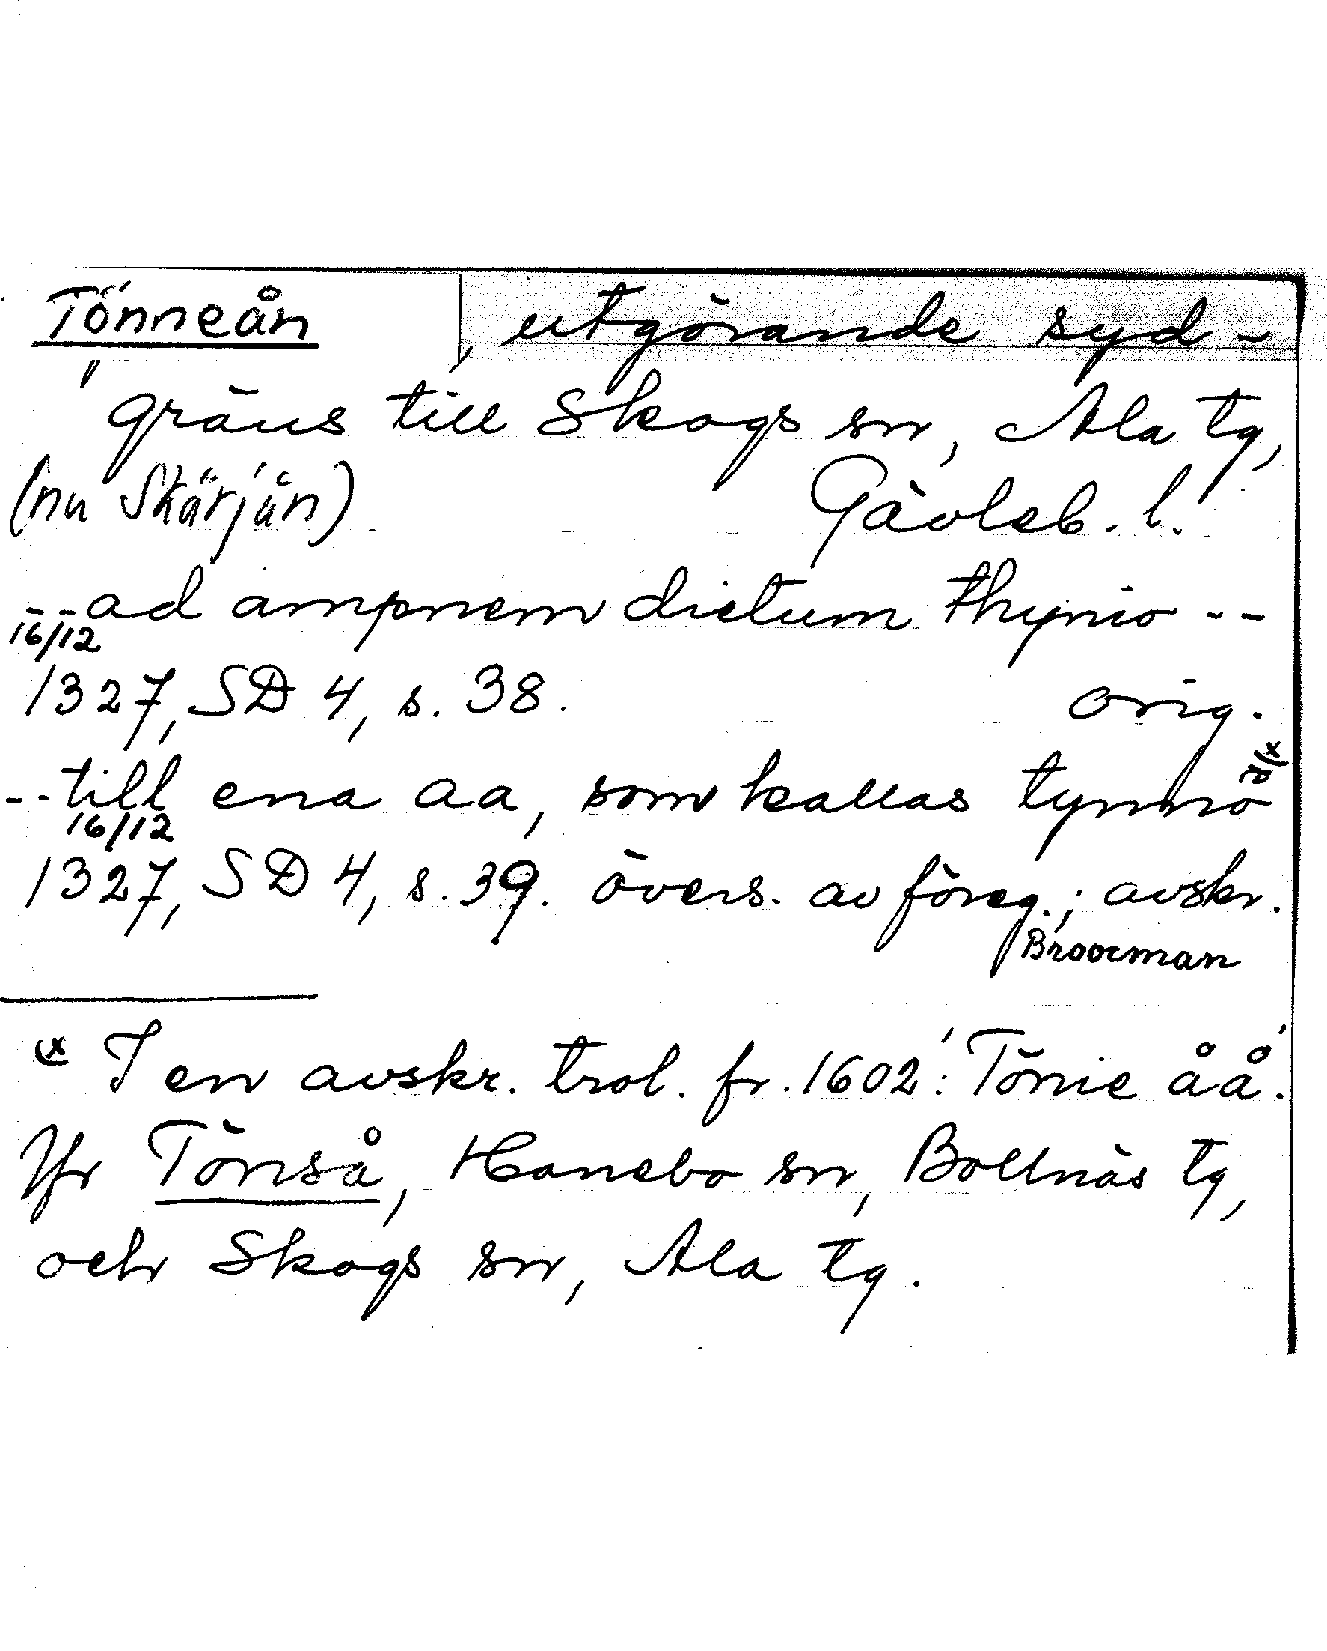 Tönneån, utgörande syd-
gräns till Skogs sn, Ala tg,
(nu Skärjån). Gävleb. l.
--ad ampnem dictum thynio --
16/12
1327, SD 4, s. 38. orig.
--till ena aa, som kallas tynnio x)
16/12
1327, SD 4, s. 39. övers. av föreg.; avskr.
Broocman
x) I en avskr. trol. fr. 1602: 'Tönie åå'.
Jfr Tönså, Hanebo sn, Bollnäs tg,
och Skogs sn, Ala tg.